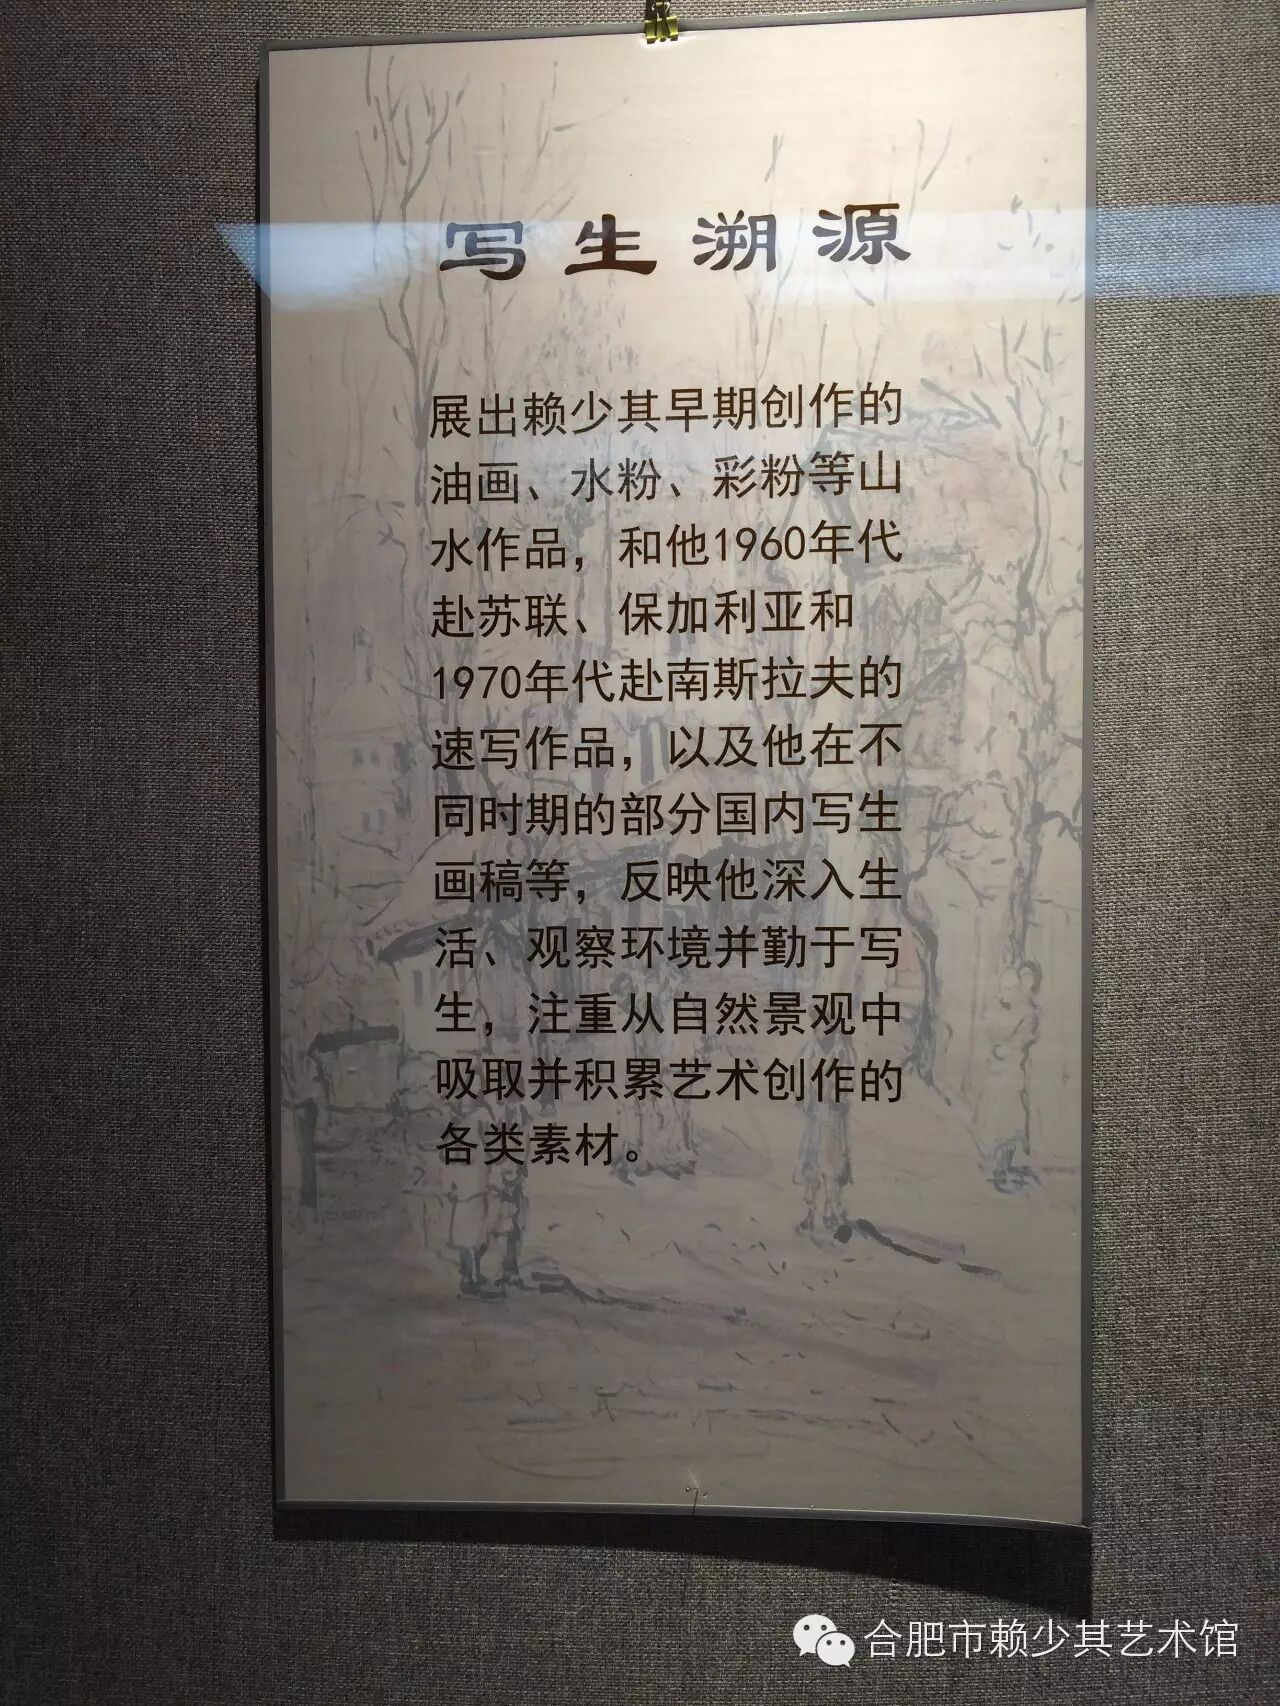 写生溯源
展出赖少其早期创作的
油画、水粉、彩粉等山
水作品，和他1960年代
赴苏联、保加利亚和
1970年代赴南斯拉夫的
速写作品，以及他在不
同时期的部分国内写生
画稿等，反映他深入生
活、观察环境并勤于写
生，注重从自然景观中
吸取并积累艺术创作的
各类素材。
合肥市赖少其艺术馆